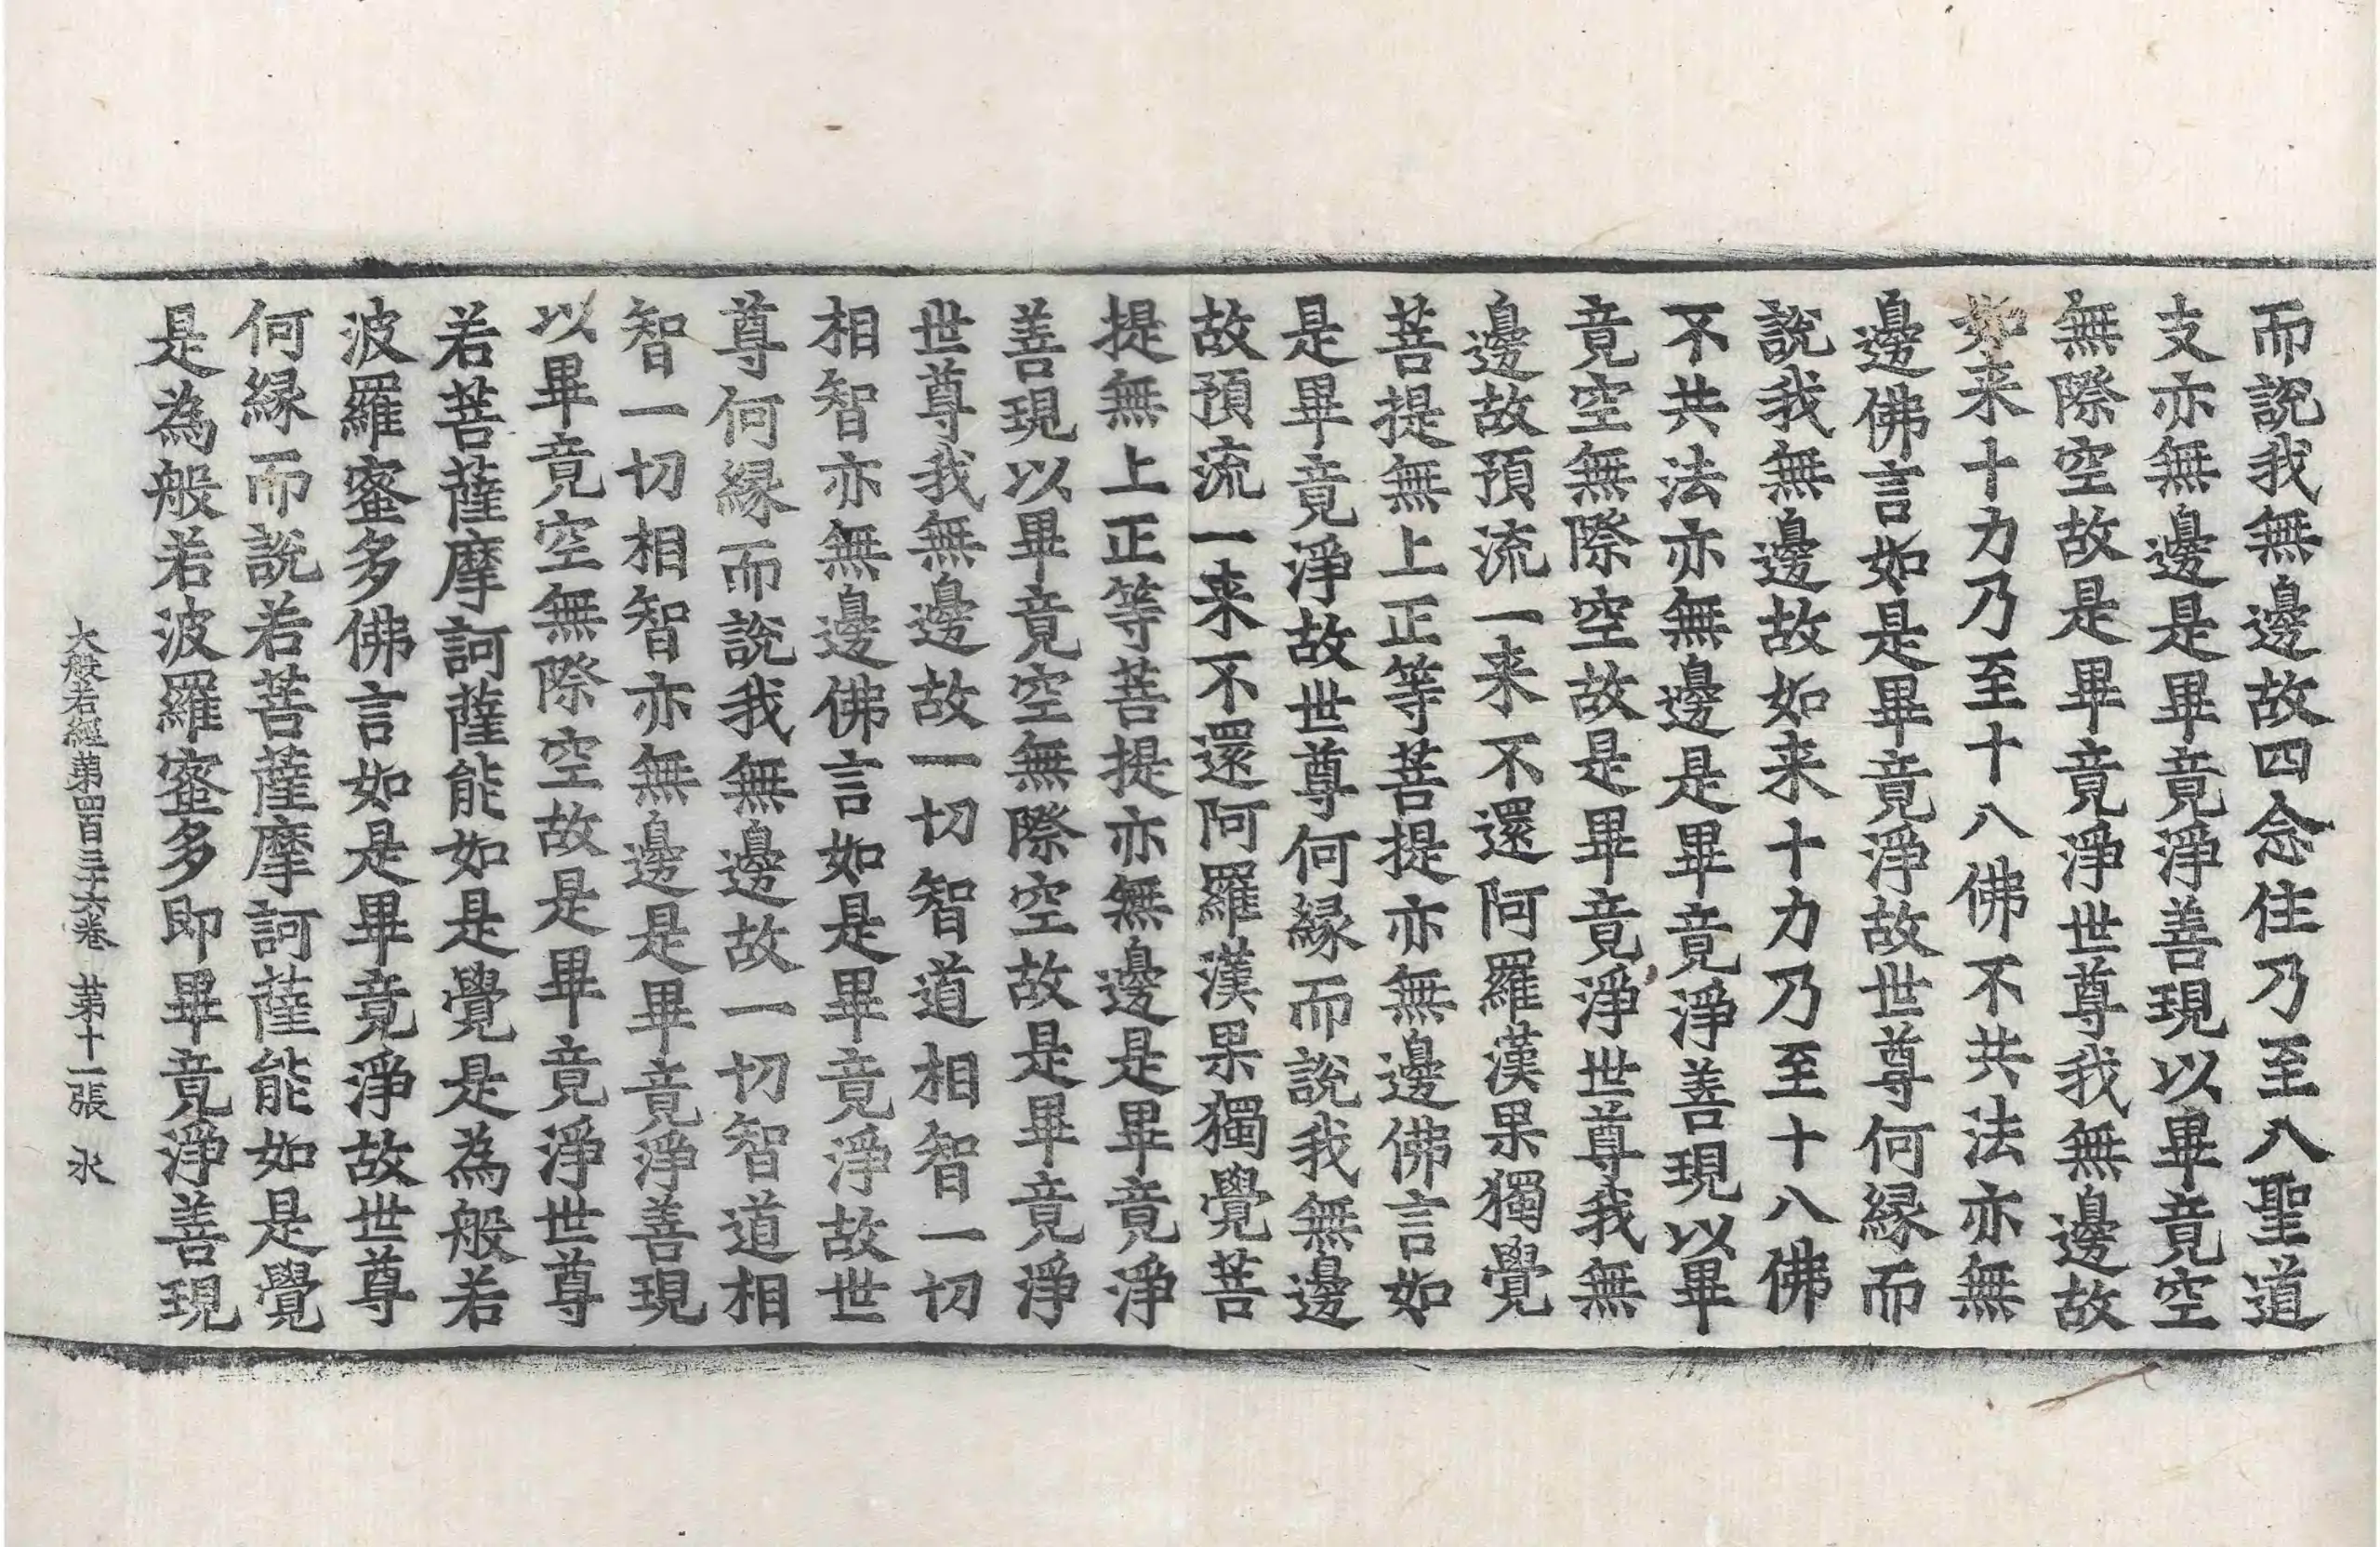 而說我無邊故四念住乃至八聖道
支亦無邊是畢竟淨善現以畢竟空
無際空故是畢竟淨世尊我無邊故
如来十力乃至十八佛不共法亦無
邊佛言如是畢竟淨故世尊何緣而
說我無邊故如来十力乃至十八佛
不共法亦無邊是畢竟淨善現以畢
竟空無際空故是畢竟淨世尊我無
邊故預流一来不還阿羅漢果獨覺
菩提無上正等菩提亦無邊佛言如
是畢竟淨故世尊何緣而說我無邊
故預流一来不還阿羅漢果獨覺菩
提無上正等菩提亦無邊是畢竟淨
善現以畢竟空無際空故是畢竟淨
世尊我無邊故一切智道相智一切
相智亦無邊佛言如是畢竟淨故世
尊何緣而說我無邊故一切智道相
智一切相智亦無邊是畢竟淨善現
以畢竟空無際空故是畢竟淨世尊
若菩薩摩訶薩能如是覺是為般若
波羅蜜多佛言如是畢竟淨故世尊
何緣而說若菩薩摩訶薩能如是覺
是為般若波羅蜜多即畢竟淨善現
大般若經第四百三十六卷 第十一張 氷